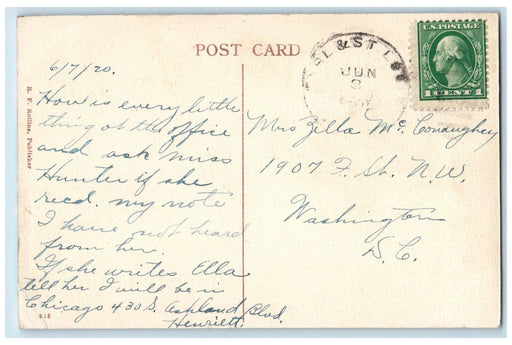 POST CARD
6/7/20.
How is every little
thing at the office
and ask miss
Hunter if she
recd. my note
I have not heard
from her.
If she writes Ella
tell her I will be in
Chicago 430 S. Ashland Blvd.
Henriett.
513
B. F. Rollins, Publisher
& ST L
JUN
U.S. POSTAGE
1 CENT 1
Mrs Zella Mc Conaughey
1907 F. St. N.W.
Washington
D.C.